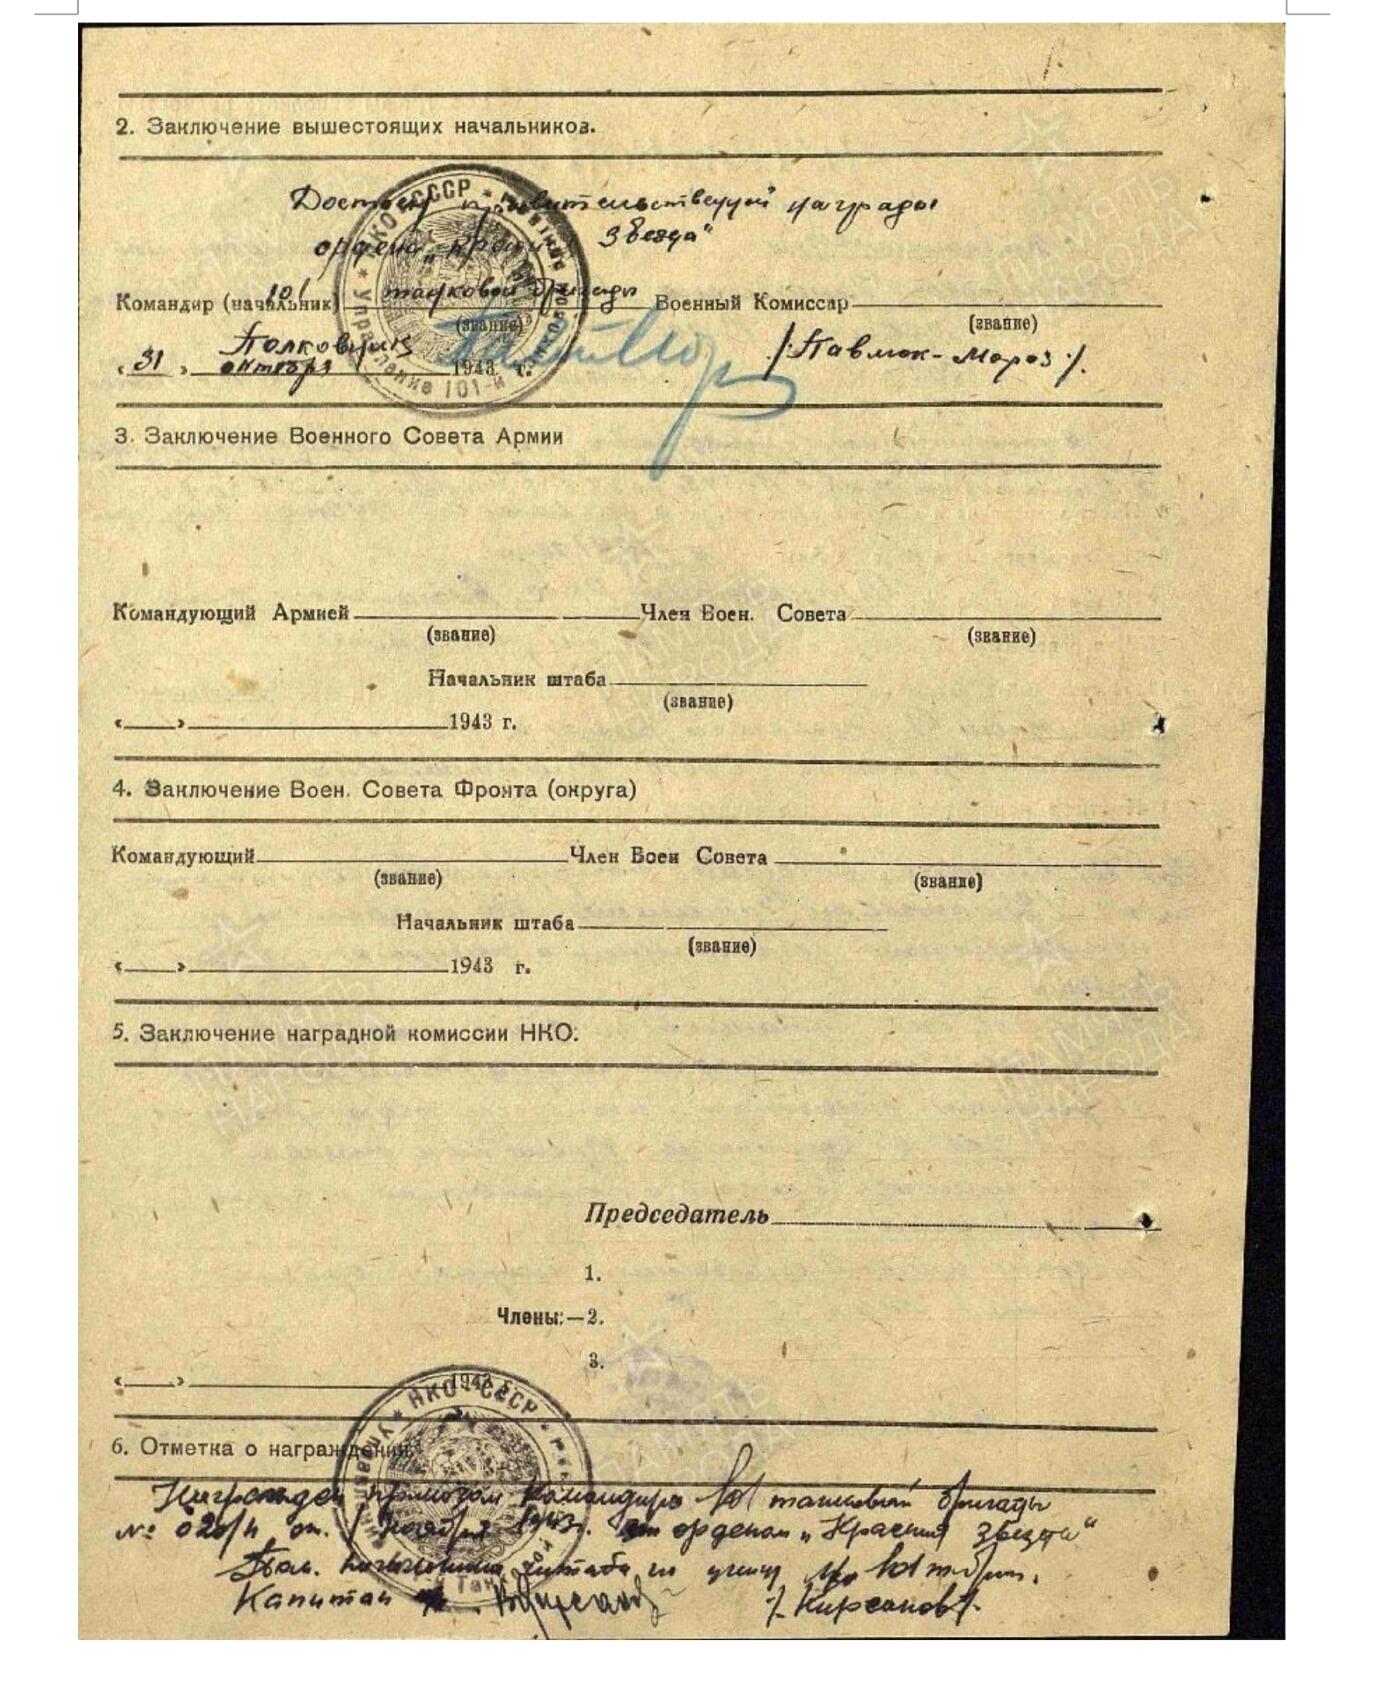 2. Заключение вышестоящих начальников.
Достоин правительственной награды
ордена „Красн Звезда“
Командир (начальник) 101 танковой бригады Военный Комиссар
(звание) (звание)
Полковник /Павлюк-Мороз/.
„31" октября 1943 г.
3. Заключение Военного Совета Армии
Командующий Армией Член Воен. Совета
(звание) (звание)
Начальник штаба
(звание)
« » 1943 г.
4. Заключение Воен. Совета Фронта (округа)
Командующий Член Воен Совета
(звание) (звание)
Начальник штаба
(звание)
« » 1943 г.
5. Заключение наградной комиссии НКО.
Председатель
1.
Члены:—2.
3.
« » 1943 г.
НКО СССР
6. Отметка о награждении
Награжден приказом командира 101 танковой бригады
№ 020/н от 1 ноября 1943г. орденом „Красная Звезда“
Пом. начальника штаба по учету 101 т.бриг.
Капитан /Кирсанов/.
НКО СССР
Управление 101-й
ПАМЯТЬ
НАРОДА